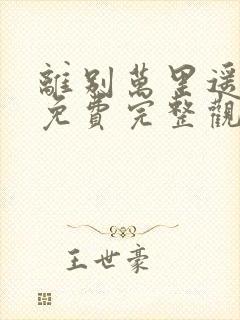 離別萬里遥
免費完整觀
王世豪